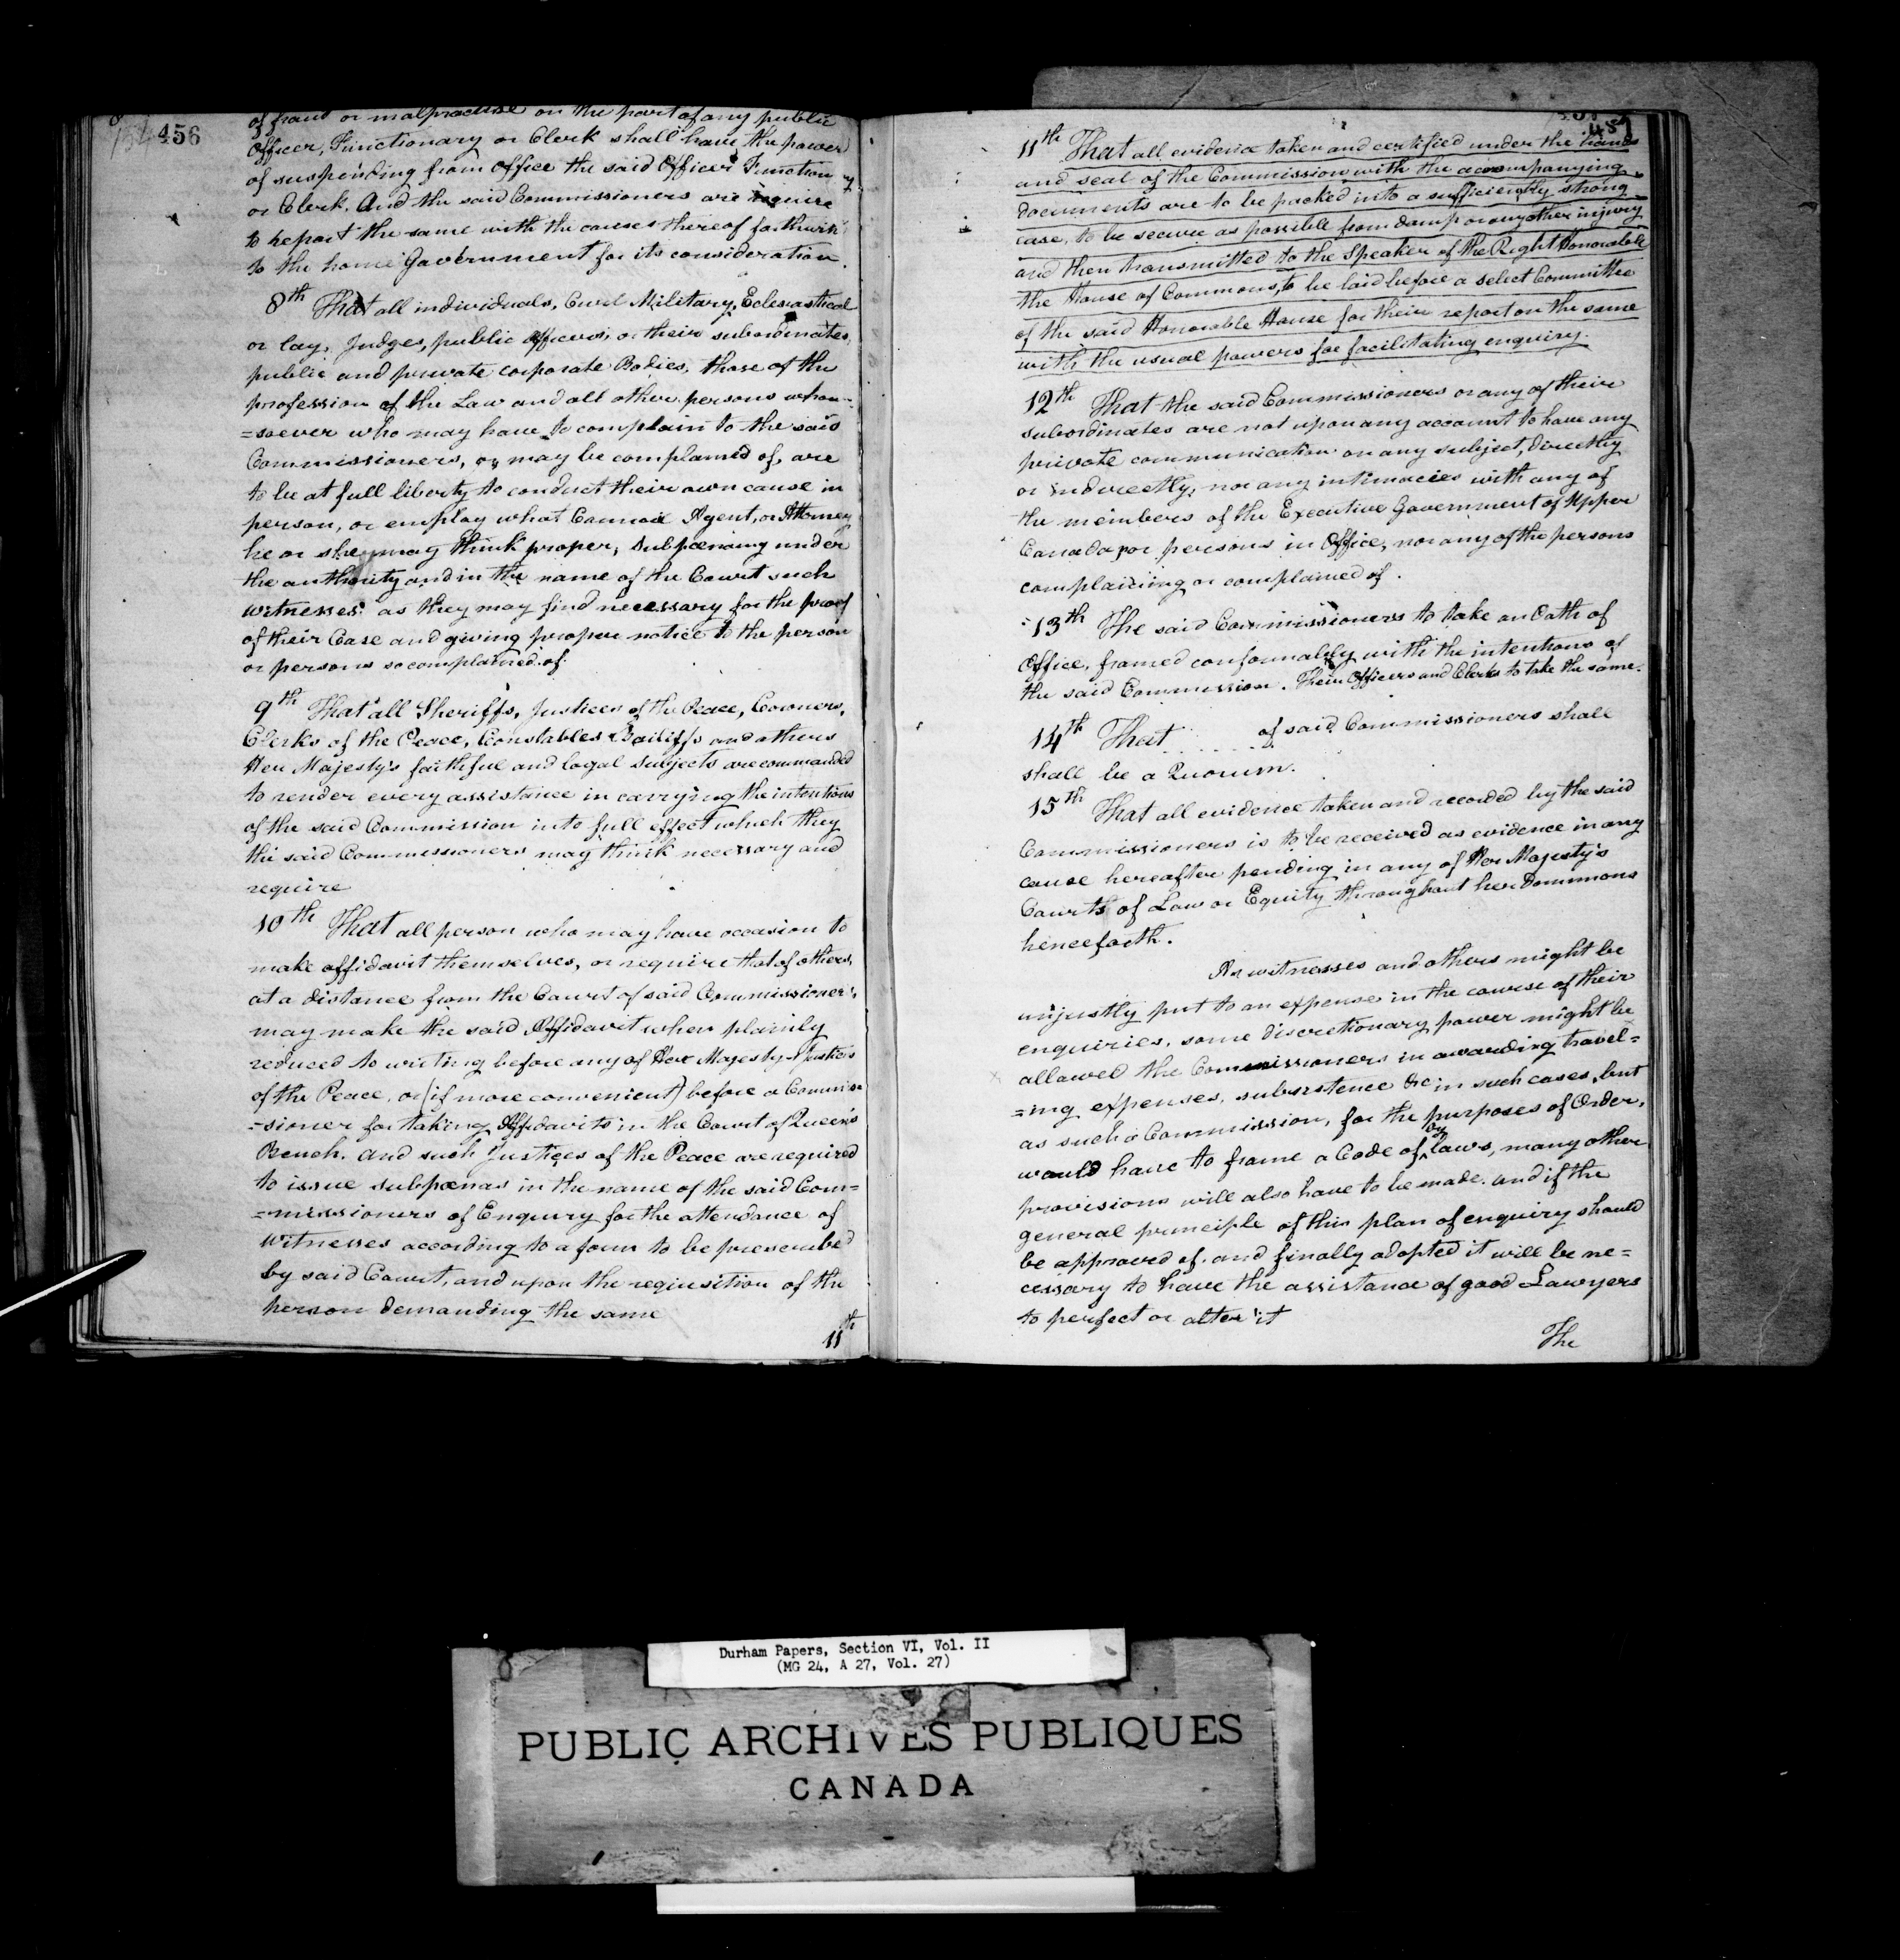 456
of fraud or malpractise on the part of any public
Officer, Functionary or Clerk shall have the power
of suspending from Office the said Officer Functiony
or Clerk. And the said Commissioners are require
to report the same with the causes thereof forthwith
to the home Government for its consideration.
8th That all individuals, Civil Military, Eclesiastical
or lay, Judges, public officers, or their subordinates,
public and private corporate Bodies, those of the
profession of the Law and all other persons whom=
=soever who may have to complain to the said
Commissioners, or may be complained of, are
to be at full liberty to conduct their own cause in
person, or employ what Agent, or Attorney
he or she may think proper, Subpœnaing under
the authority and in the name of the Court such
witnesses as they may find necessary for the proof
of their Case and giving proper notice to the person
or persons so complained of.
9th That all Sheriffs, Justices of the Peace, Coroners,
Clerks of the Peace, Constables Bailiffs and others
Her Majesty's faithful and loyal Subjects are commanded
to render every assistance in carrying the intentions
of the said Commission into full effect which they
the said Commissioners may think necessary and
require
10th That all person who may have occasion to
make affidavit themselves, or require that of others,
at a distance from the Court of said Commissioners,
may make the said Affidavit when plainly
reduced to writing before any of Her Majesty's Justices
of the Peace, or (if more convenient) before a Commis=
=sioner for taking Affidavits in the Court of Queen's
Bench. And such Justices of the Peace are required
to issue subpœnas in the name of the said Com=
=missioners of Enquiry for the attendance of
Witnesses according to a form to be prescribed
by said Court, and upon the requisition of the
person demanding the same
11th
457
11th That all evidence taken and certified under the hands
and seal of the Commission with the accompanying
documents are to be packed into a sufficiently strong
case, to be secure as possible from damp or any other injury
and then transmitted to the Speaker of the Right Honorable
the House of Commons, to be laid before a select Committee
of the said Honorable House for their report on the same
with the usual powers for facilitating enquiry.
12th That the said Commissioners or any of their
subordinates are not upon any account to have any
private communication on any subject, directly
or indirectly, nor any intimacies with any of
the members of the Executive Government of Upper
Canada, or persons in Office, nor any of the persons
complaining or complained of.
13th The said Commissioners to take an Oath of
Office, framed conformably with the intentions of
the said Commission. Their Officers and Clerks to take the same.
14th That ...... of said Commissioners shall
shall be a Quorum.
15th That all evidence taken and recorded by the said
Commissioners is to be received as evidence in any
cause hereafter pending in any of Her Majesty's
Courts of Law or Equity throughout her Dominions
henceforth.
As witnesses and others might be
unjustly put to an expense in the course of their
enquiries, some discretionary power might be
allowed the Commissioners in awarding travel=
=ing expenses, subsistence &c in such cases, but
as such a Commission, for the purposes of Order,
would have to frame a Code of by laws, many other
provisions will also have to be made. and if the
general principle of this plan of enquiry should
be approved of, and finally adopted it will be ne=
cessary to have the assistance of good Lawyers
to perfect or alter it
The
Durham Papers, Section VI, Vol. II
(MG 24, A 27, Vol. 27)
PUBLIC ARCHIVES PUBLIQUES
CANADA